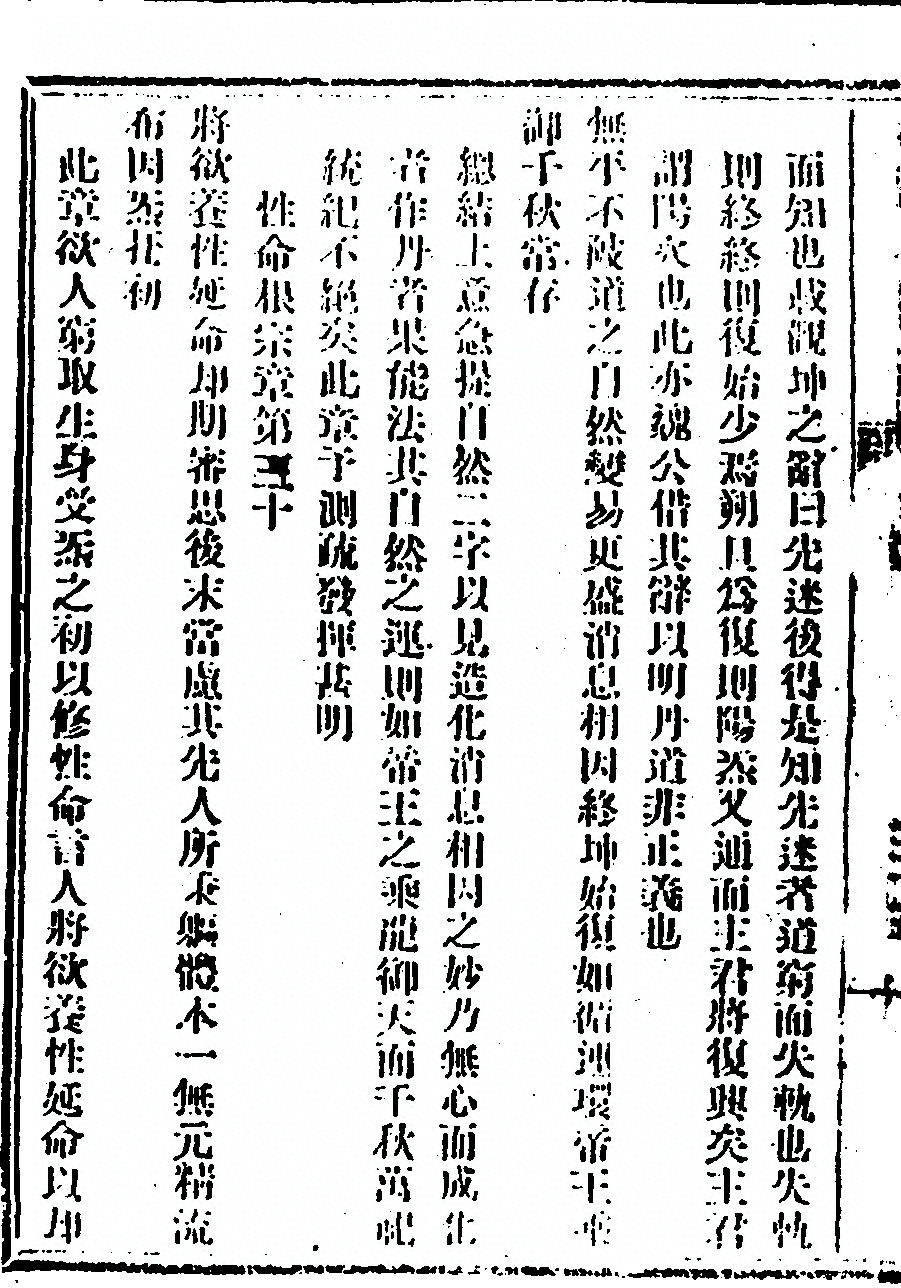 而知也哉觀坤之辭曰先迷後得是知先迷者道窮而失軌也失軌
則終終則復始少焉朔旦為復則陽炁又通而主君將復興矣主君
謂陽炎也此亦魏公借其辭以明丹道非正義也
無平不陂道之自然變易更盛消息相因終坤始復如循連環帝王乘
御千秋常存
總結上意急提自然二字以見造化消息相因之妙乃無心而成化
者作丹者果能法其自然之運則如帝王之乘龍御天而千秋萬祀
統紀不絕矣此章予測疏發揮甚明
性命根宗章第二十
將欲養性延命却期審思後末當慮其先人所秉軀體本一無元精流
布因炁托初
此章欲人窮取生身受炁之初以修性命言人將欲養性延命以却